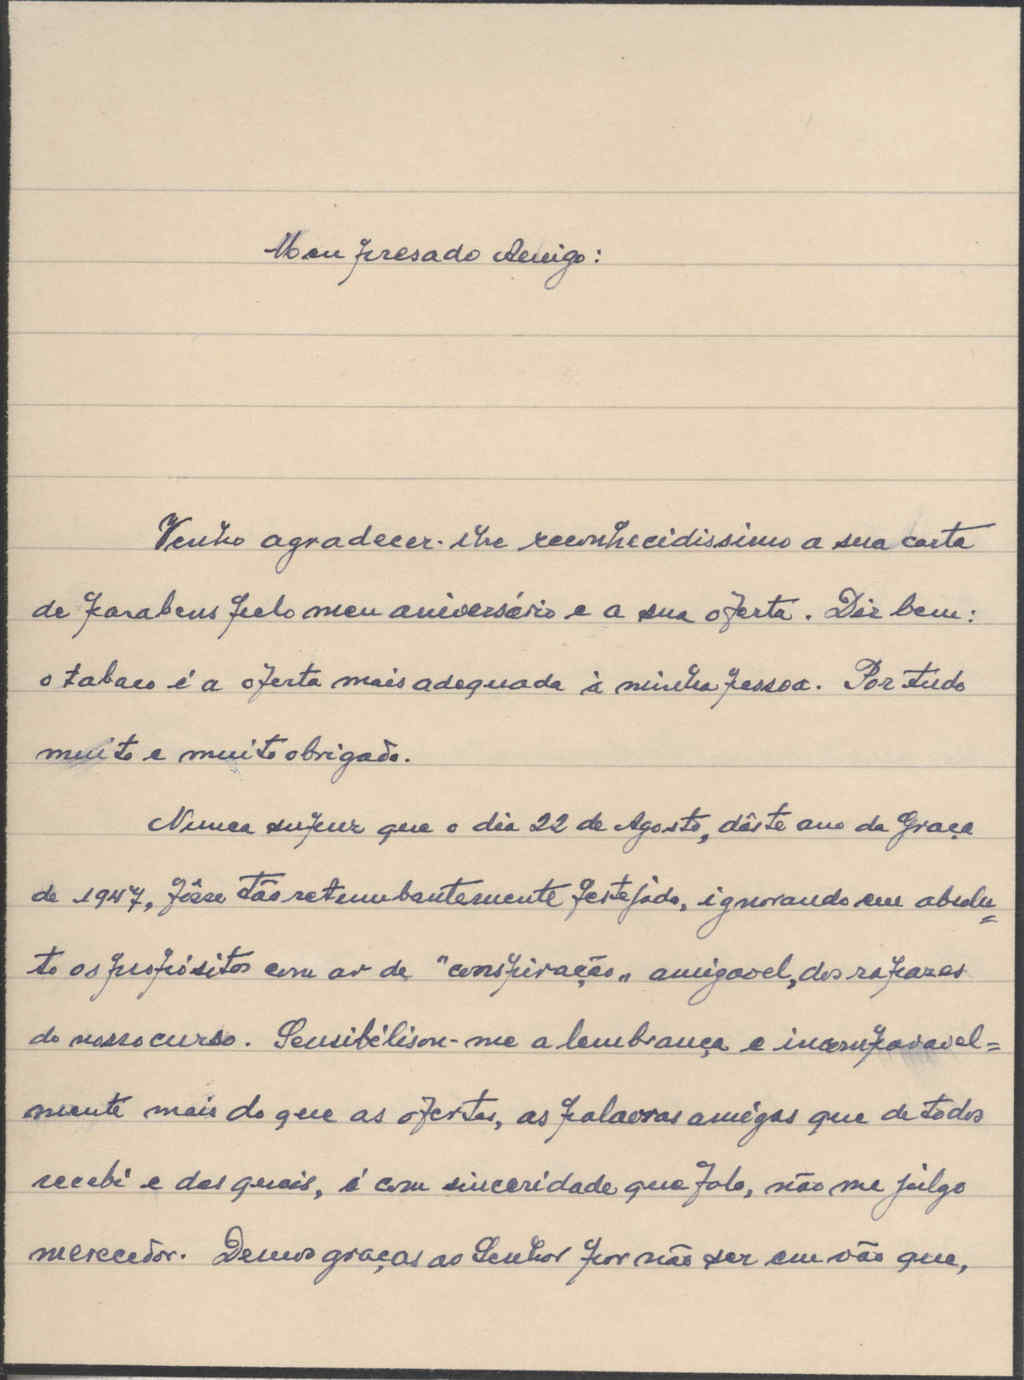 Meu presado Amigo:
Venho agradecer-lhe reconhecidissimo a sua carta
de parabens pelo meu aniversário e a sua oferta. Diz bem:
o tabaco é a oferta mais adequada à minha pessoa. Por tudo
muito e muito obrigado.
Nunca supuz que o dia 22 de Agosto, dêste ano da Graça
de 1947, fôsse tão retumbantemente festejado, ignorando em absolu=
to os propósitos com ar de "conspiração" amigavel, dos rapazes
do nosso curso. Sensibilisou-me a lembrança e incomparavel=
mente mais do que as ofertas, as palavras amigas que de todos
recebi e das quais, é com sinceridade que falo, não me julgo
merecedor. Demos graças ao Senhor por não ser em vão que,